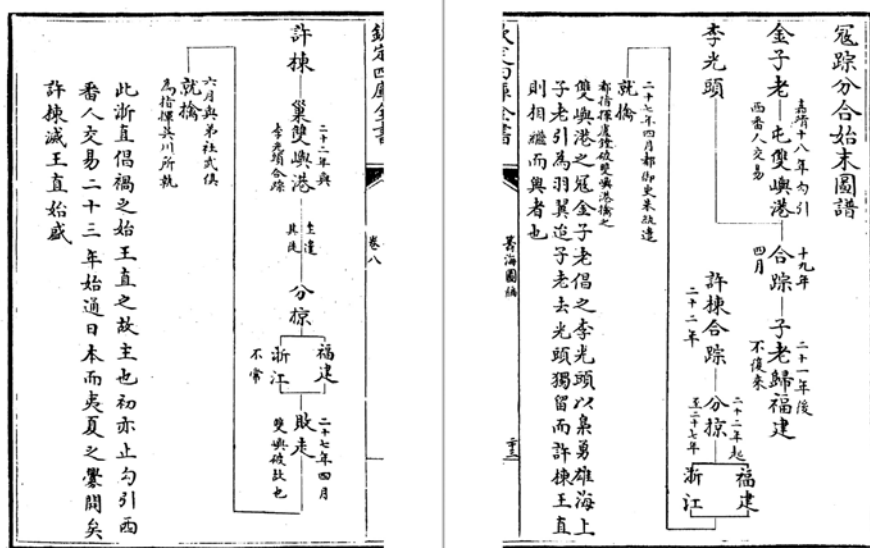 寇踪分合始末圖譜
金子老
嘉靖十八年勾引
西番人交易
屯雙嶼港
十九年
四月
合踪
子老歸福建
二十一年後
不復來
李光頭
許棟合踪
二十二年
分掠
二十二年起
至二十七年
福建
浙江
二十七年四月都御史朱紈遣
都指揮盧鏜破雙嶼港擒之
就擒
雙嶼港之寇金子老倡之李光頭以梟勇雄海上
子老引為羽翼迨子老去光頭獨留而許棟王直
則相繼而興者也
欽定四庫全書
籌海圖編
卷八
許棟
巢雙嶼港
二十二年與
李光頭合踪
主遣
其徒
分掠
福建
浙江
不常
敗走
二十七年四月
雙嶼破故也
六月與弟社武俱
為指揮吳川所執
就擒
此浙直倡禍之始王直之故主也初亦止勾引西
番人交易二十三年始通日本而夷夏之釁開矣
許棟滅王直始盛